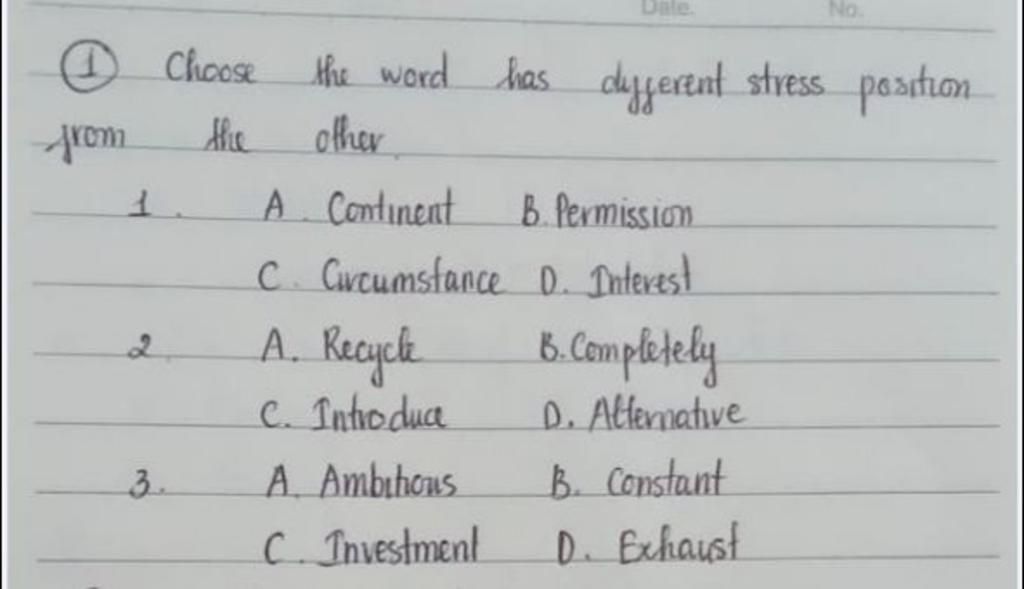 Date. No.
① Choose the word has dyfferent stress position
from the other.
1. A. Continent B. Permission
C. Circumstance D. Interest
2. A. Recycle B. Completely
C. Introduce D. Alternative
3. A. Ambitious B. Constant
C. Investment D. Exhaust